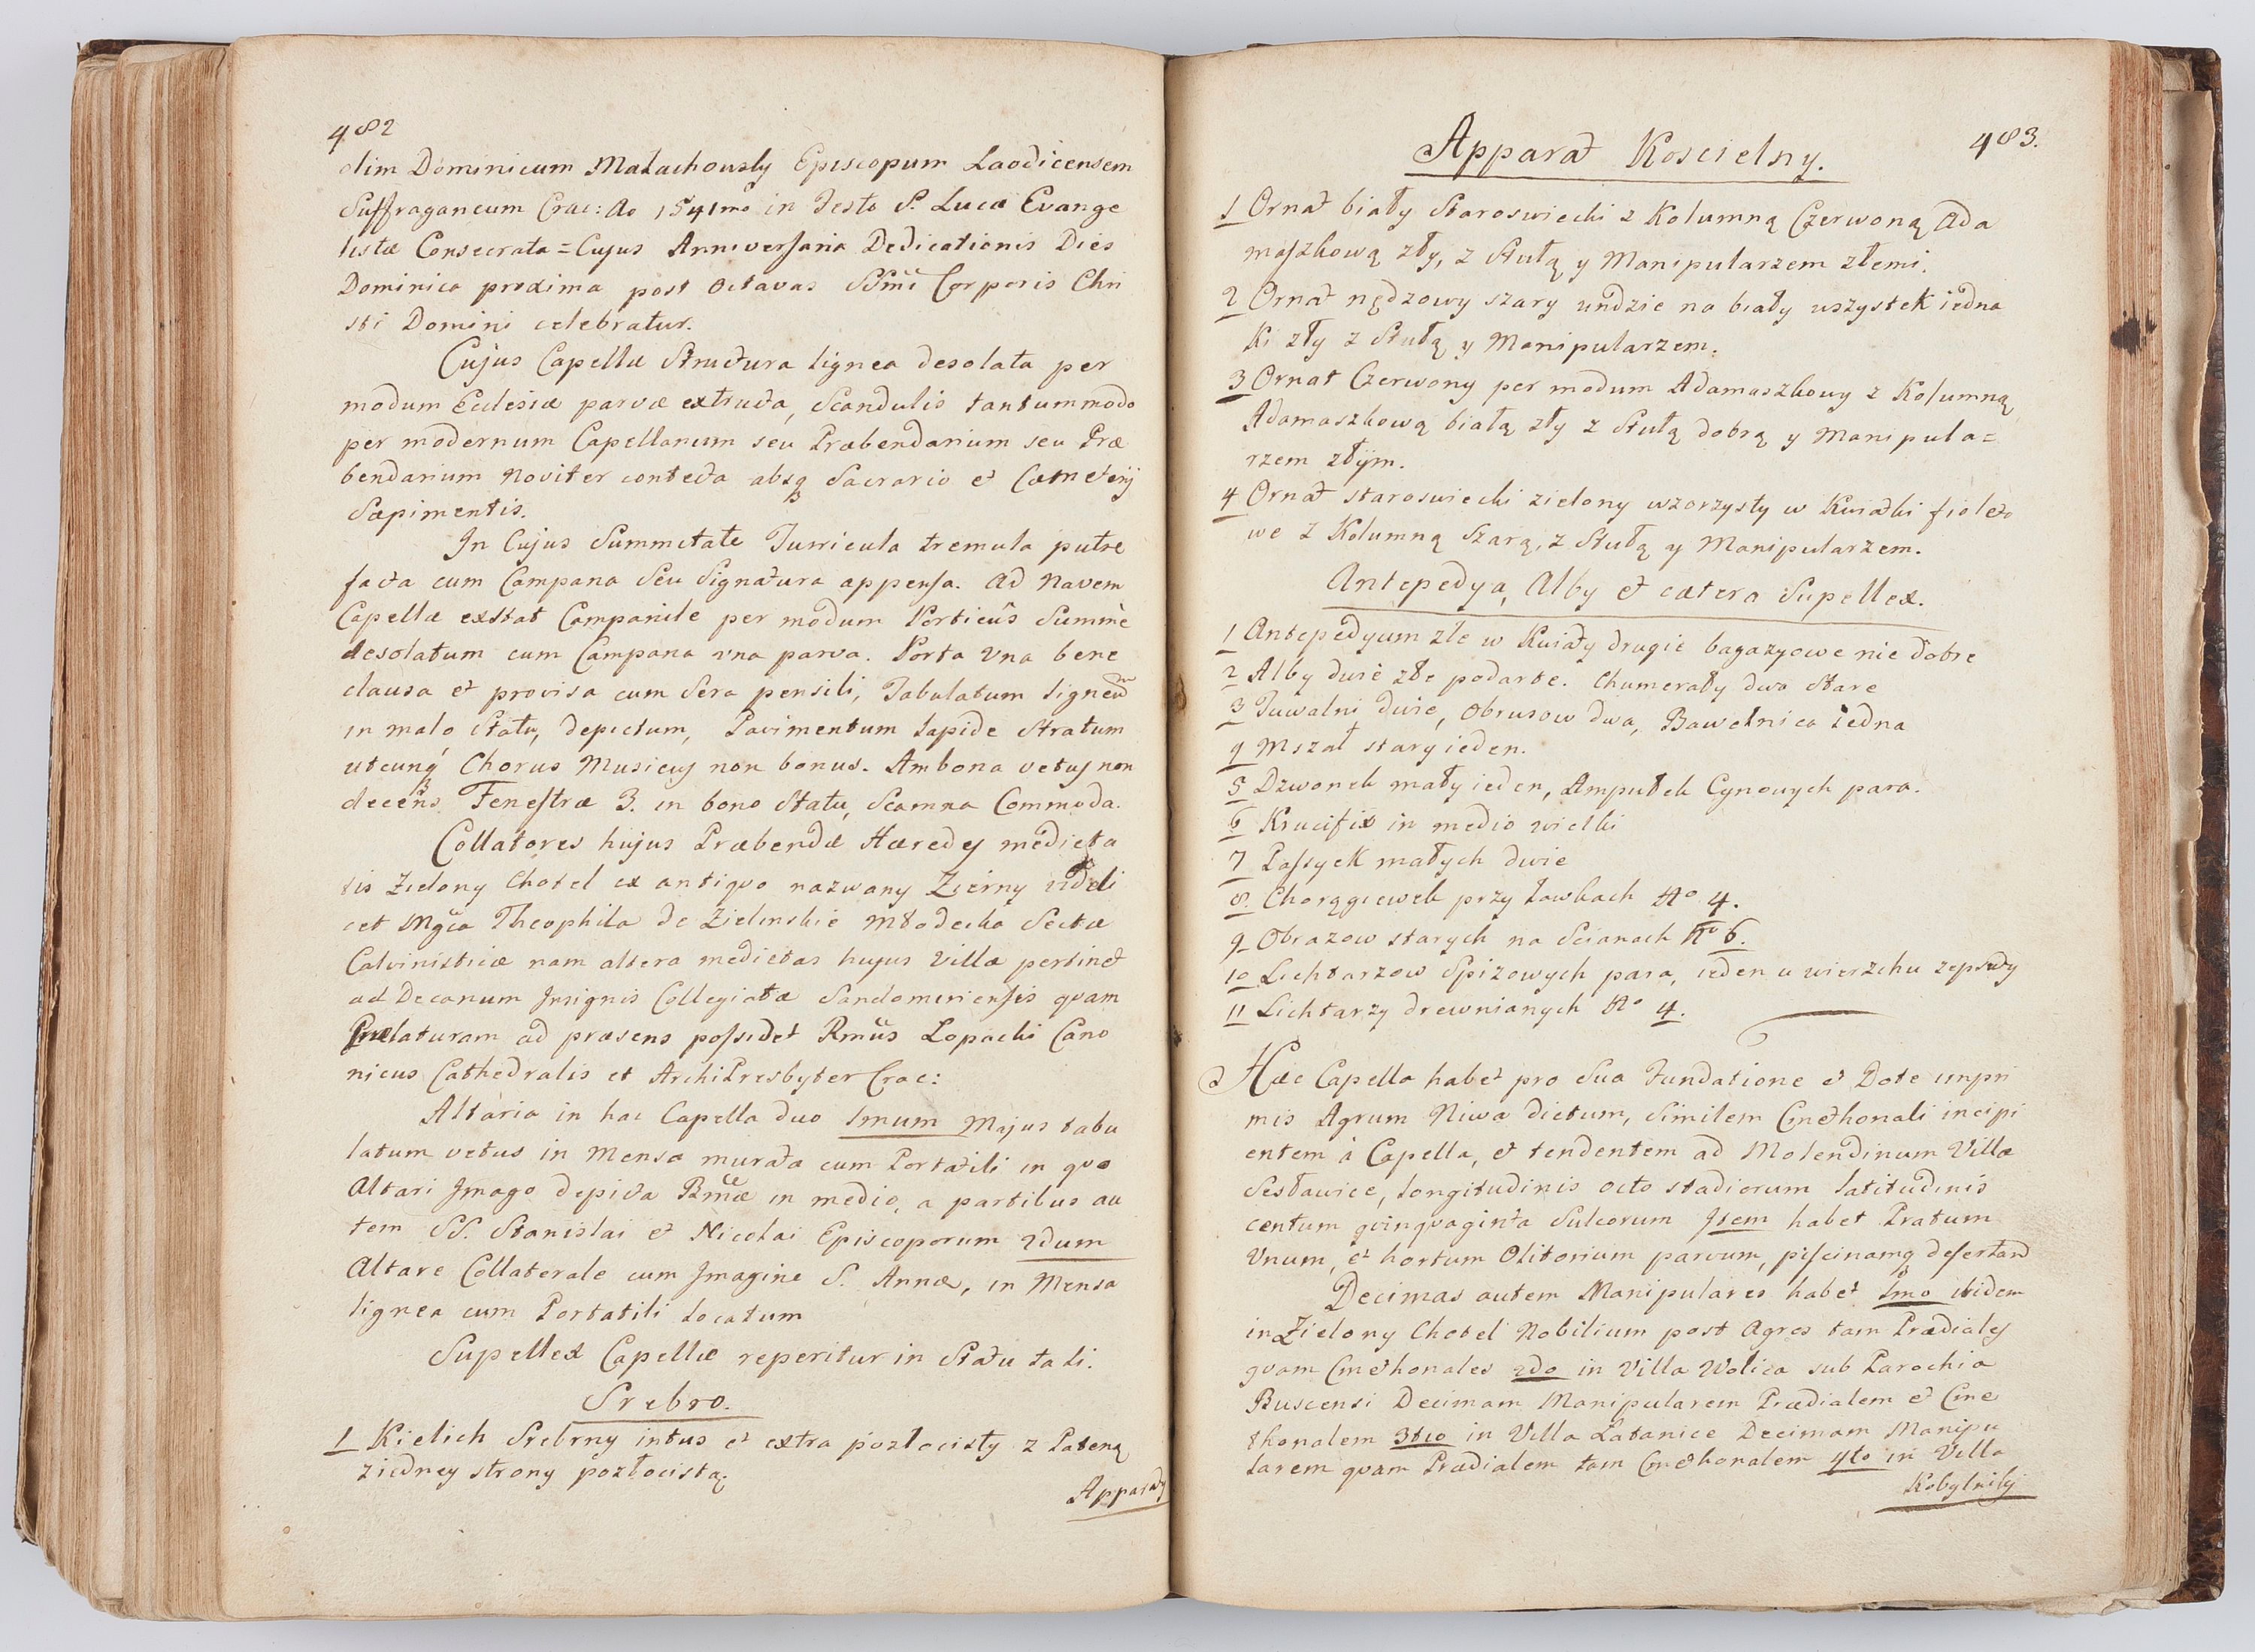 482
olim Dominicum Małachowsky Episcopum Laodicensem
Suffraganeum Crac: Ao 1541mo in Festo S. Lucæ Evange
listæ Consecrata = Cujus Anniversaria Dedicationis Dies
Dominica proxima post Octavas SSmi Corporis Chri
sti Domini celebratur.
Cujus Capellæ Structura lignea desolata per
modum Ecclesiæ parvæ extructa, Scandulis tantummodo
per modernum Capellanum seu Præbendarium seu Præ
bendarium Noviter contecta absq Sacrario et Cæmeterij
Sæpimentis.
In Cujus Summitate Turricula tremula putre
facta cum Campana Seu Signatura appensa. Ad Navem
Capellæ exstat Campanile per modum Porticûs Summè
desolatum cum Campana una parva. Porta Una bene
clausa et provisa cum Sera pensili, Tabulatum ligneum
in malo Statu, depictum, Pavimentum lapide Stratum
utcunq Chorus Musicus non bonus. Ambona vetus non
decens Fenestræ 3. in bono Statu, Scamna Commoda.
Collatores hujus Præbendæ Hæredes medieta
tis Zielony Chotel ex antiquo nazwany Zierny videli
cet Mgca Theophila de Zielinskie Młodecka Sectæ
Calvinisticæ nam altera medietas hujus Villæ pertinet
ad Decanum Insignis Collegiatæ Sandomiriensis quam
Prælaturam ad præsens possidet Rmus Lopacki Cano
nicus Cathedralis et ArchiPresbyter Crac:
Altaria in hac Capella duo 1mum Majus tabu
latum vetus in Mensa murata cum Portatili in quo
Altari Imago depicta Bmæ in medio, a partibus au
tem SS. Stanislai et Nicolai Episcoporum 2dum
Altare Collaterale cum Imagine S. Annæ, in Mensa
lignea cum Portatili locatum
Supellex Capellæ reperitur in Statu tali.
Srebro.
1 Kielich Srebrny intus et extra pozłocisty z Pateną
ziedney strony pozłocistą.
Apparaty
483.
Apparat Koscielny.
1 Ornat biały Staroswiecki z Kolumną Czerwoną Ada
maszkową zły, z Stułą y Manipularzem złemi.
2 Ornat nędzowy szary undzie na biały wszystek iedna
ki zły z Stułą y Manipularzem.
3 Ornat Czerwony per modum Adamaszkowy z Kolumną
Adamaszkową białą zły z Stułą dobrą y Manipula=
rzem złÿm.
4 Ornat staroswiecki zielony wzorzysty w Kwiatki fioleto
we z Kolumną Szarą, z Stułą y Manipularzem.
Antepedya, Alby et cætera Supellex.
1 Antepedyum złe w Kwiaty drugie bagazyowe nie dobre
2 Alby dwie złe podarte. Chumerały dwa Stare
3 Tuwalni dwie, Obrusow dwa, Bawełnica iedna
4 Mszał stary ieden.
5 Dzwonek mały ieden, Ampułek Cynowych para.
6 Krucifix in medio wielki
7 Passyek małych dwie
8. Chorągiewek przy Ławkach No 4.
9 Obrazow starych na Scianach No 6.
10 Lichtarzow Spizowych para, ieden u wierzchu zepsuty
11 Lichtarzy drewnianych No 4.
Hæc Capella habet pro Sua Fundatione et Dote impri
mis Agrum Niwa dictum, Similem Cmethonali incipi
entem à Capella, et tendentem ad Molendinum Villæ
Sesławice, longitudinis octo stadiorum latitudinis
centum quinquaginta Sulcorum Item habet Pratum
Unum, et hortum Olitorium parvum, piscinamq desertam
Decimas autem Manipulares habet 1mo ibidem
in Zielony Chotel Nobilium post Agros tam Prædiales
quam Cmethonales 2do in Villa Wolica sub Parochia
Buscensi Decimam Manipularem Prædialem et Cme
thonalem 3tio in Villa Łatanice Decimam Manipu
larem quam Prædialem tam Cmethonalem 4to in Villa
Kobylniky